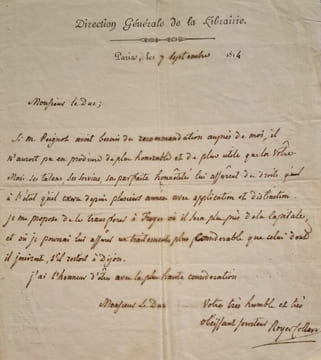 Direction Générale de la Librairie.
Paris, les 7 septembre 1814
Monsieur le Duc;
Si m. Peignot avoit besoin de recommandation auprès de moi, il
n'auroit pu en produire de plus honorable et de plus utile que la Vôtre
Mais ses talens, ses services, sa parfaite honnêteté lui assurent des droits quil
à l'état qu'il exerce depuis plusieurs années avec application et distinction.
je me propose de le transférer à Troyes où il sera plus près de la Capitale,
et où je pourrai lui assurer un traitement plus Considerable que celui dont
il jouiroit, s'il restoit à Dijon.
j'ai l'honneur d'être avec la plus haute consideration
Monsieur Le Duc
Votre très humble et très
obéissant serviteur
Royer Collard